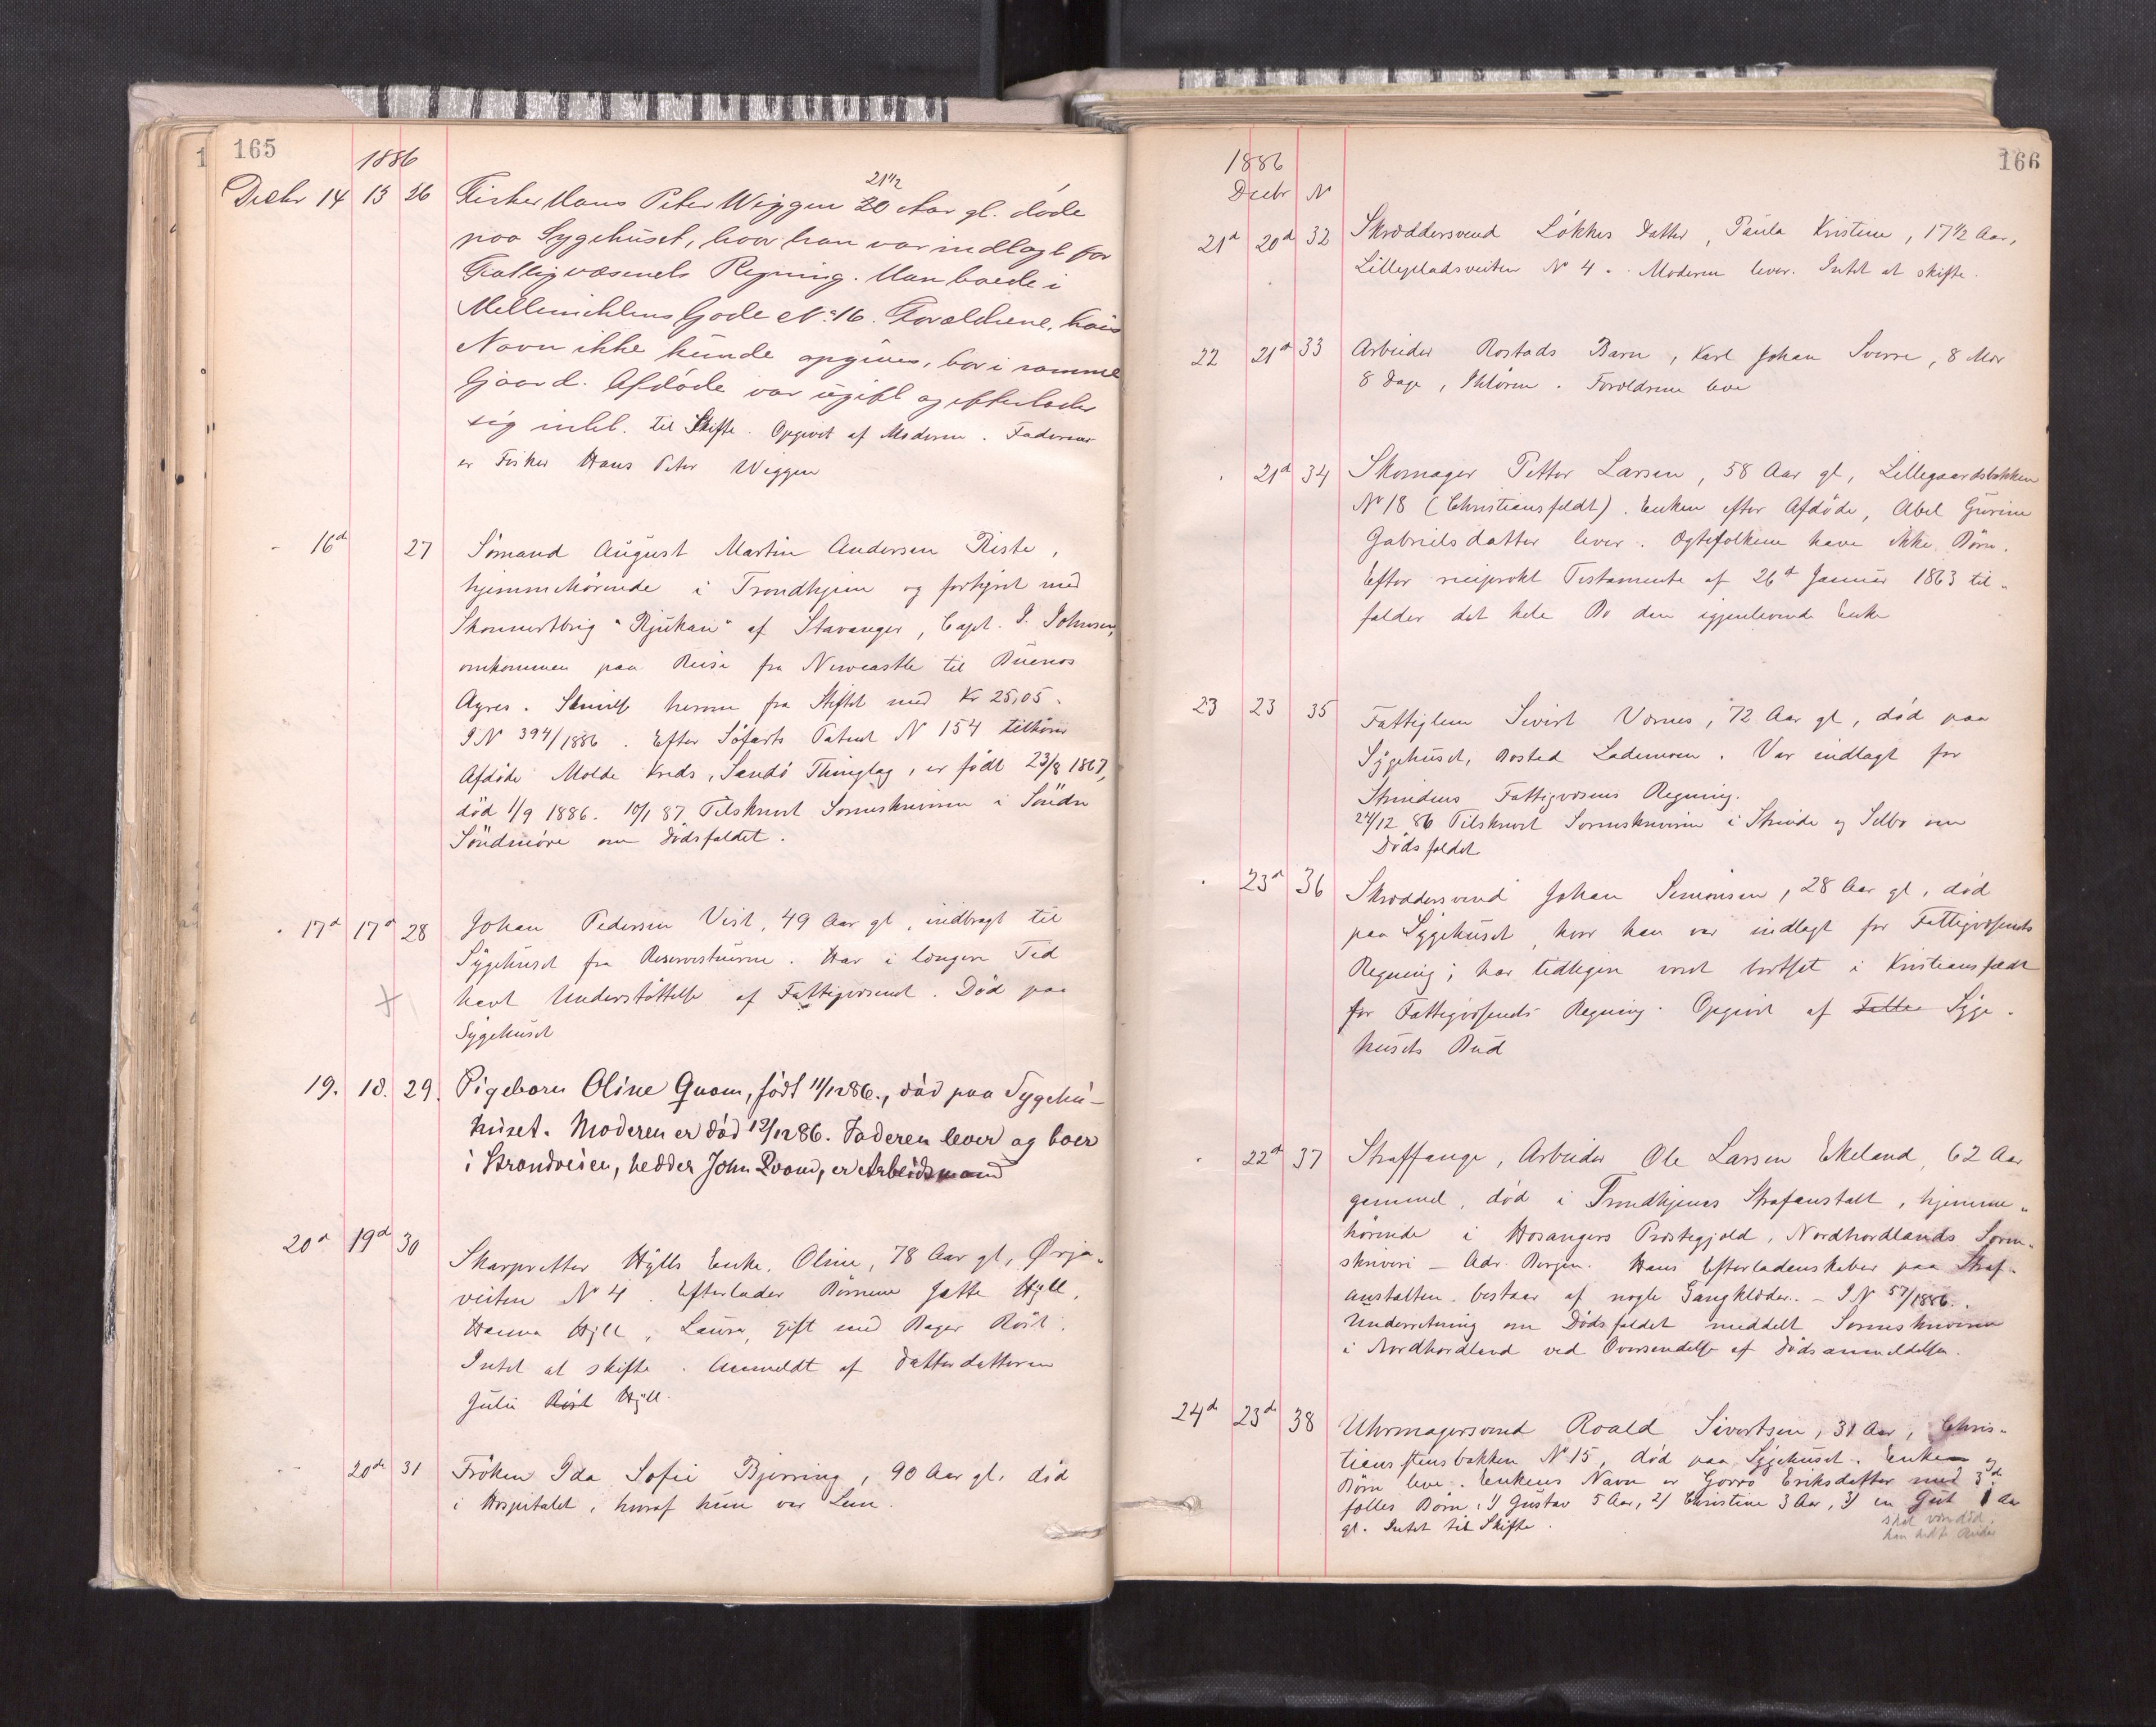 165
1886
Decbr 14 13 26 Fisker Hans Peter Wiggen 20 Aar gl. døde
21½
paa Sygehuset, hvor han var indlagt for
Fattigvæsenets Regning. Han boede i
Mellemihlens Gade No 16. Forældrene, hvis
Navn ikke kunde opgives, bor i samme
Gaard. Afdøde var ugift og efterlader
sig intet til Skifte. Opgivet af Moderen. Faderen
er Fisker Hans Peter Wiggen
- 16d 27 Sømand August Martin Andersen Riste,
hjemmehørende i Trondhjem og forhyret med
Skonnertbrig "Rjukan" af Stavanger, Capt. P. Johnsen,
omkommen paa Reise fra Newcastle til Buenos
Ayres. herom fra Stiftet med Kr 25,05.
JN 394/1886. Efter Søfarts Patent N 154 tilhører
Afdøde Molde Kreds, Sandø Thinglag, er født 23/8 1867,
død 1/9 1886. 10/1 87 Tilskrevet Sorenskriveren i Søndre
Søndmøre om Dødsfaldet.
17d 17d 28 Johan Pedersen Vist, 49 Aar gl, indbragt til
Sygehuset fra Reservestuerne. Har i længere Tid
havt Understøttelse af Fattigvæsenet. Død paa
Sygehuset
19. 18. 29. Pigebarn Oline Qvam, født 11/12 86., død paa Sygehu-
huset. Moderen er død 12/12 86. Faderen lever og boer
i Strandveien, hedder John Qvam, er Arbeidsmand
20d 19d 30 Skarpretter Hylls Enke, Oline, 78 Aar gl, Ørja-
veiten No 4. Efterlader Børnene Jatte Hyll,
Hanna Hyll, Laura, gift med Bager Röst.
Intet at skifte. Anmeldt af Datterdatteren
Julie Röst Hyll.
20de 31 Frøken Ida Sofie Bjerring, 90 Aar gl, død
i Hospitalet, hvoraf hun var Lem.
166
1886
Decbr N
21d 20d 32 Skræddersvend Løkkes Datter, Paula Kristine, 17½ Aar,
Lillepladsveiten No 4. Moderen lever. Intet at skifte.
22 21d 33 Arbeider Rostads Barn, Karl Johan Sverre, 8 Mdr
8 Dage, Ihløren. Forældrene leve
21d 34 Skomager Petter Larsen, 58 Aar gl, Lillegaardsbakken
No 18 (Christiansfeldt). Enken efter Afdøde, Abel Gurine
Gabrielsdatter lever. Ægtefolkene have ikke Børn.
Efter reciprokt Testamente af 26d Januar 1863 til-
falder det hele Bo den igjenlevende Enke
23 23 35 Fattiglem Sivert Værnes, 72 Aar gl, død paa
Sygehuset, Bosted Lademoen. Var indlagt for
Strindens Fattigvæsens Regning.
24/12 86 Tilskrevet Sorenskriveren i Strinde og Selbo om
Dødsfaldet
23d 36 Skræddersvend Johan Simonsen, 28 Aar gl, død
paa Sygehuset, hvor han var indlagt for Fattigvæsenets
Regning; har tidligere været bortsat i Kristiansfeldt
for Fattigvæsenets Regning. Opgivet af Fatti Syge-
husets Bud
22d 37 Straffange, Arbeider Ole Larsen Ekeland, 62 Aar
gammel, død i Trondhjems Strafanstalt, hjemme-
hørende i Hosangers Præstegjæld, Nordhordlands Soren-
skriveri – Adr. Bergen. Hans Efterladenskaber paa Straf-
anstalten bestaar af nogle Gangklæder. – JN 57/1886.
Underretning om Dødsfaldet meddelt Sorenskriveren
i Nordhordland ved Oversendelse af Dødsanmeldelsen.
24de 23de 38 Uhrmagersvend Roald Sivertsen, 31 Aar, Chris-
tianstensbakken No 15, død paa Sygehuset. Enken og
Børn leve. Enkens Navn er Gorro Eriksdatter med 3de
fælles Børn: 1) Gustav 5 Aar, 2) Christine 3 Aar, 3) en Gut 1 Aar
gl. Intet til Skifte.
skal være død,
han hedt Anders